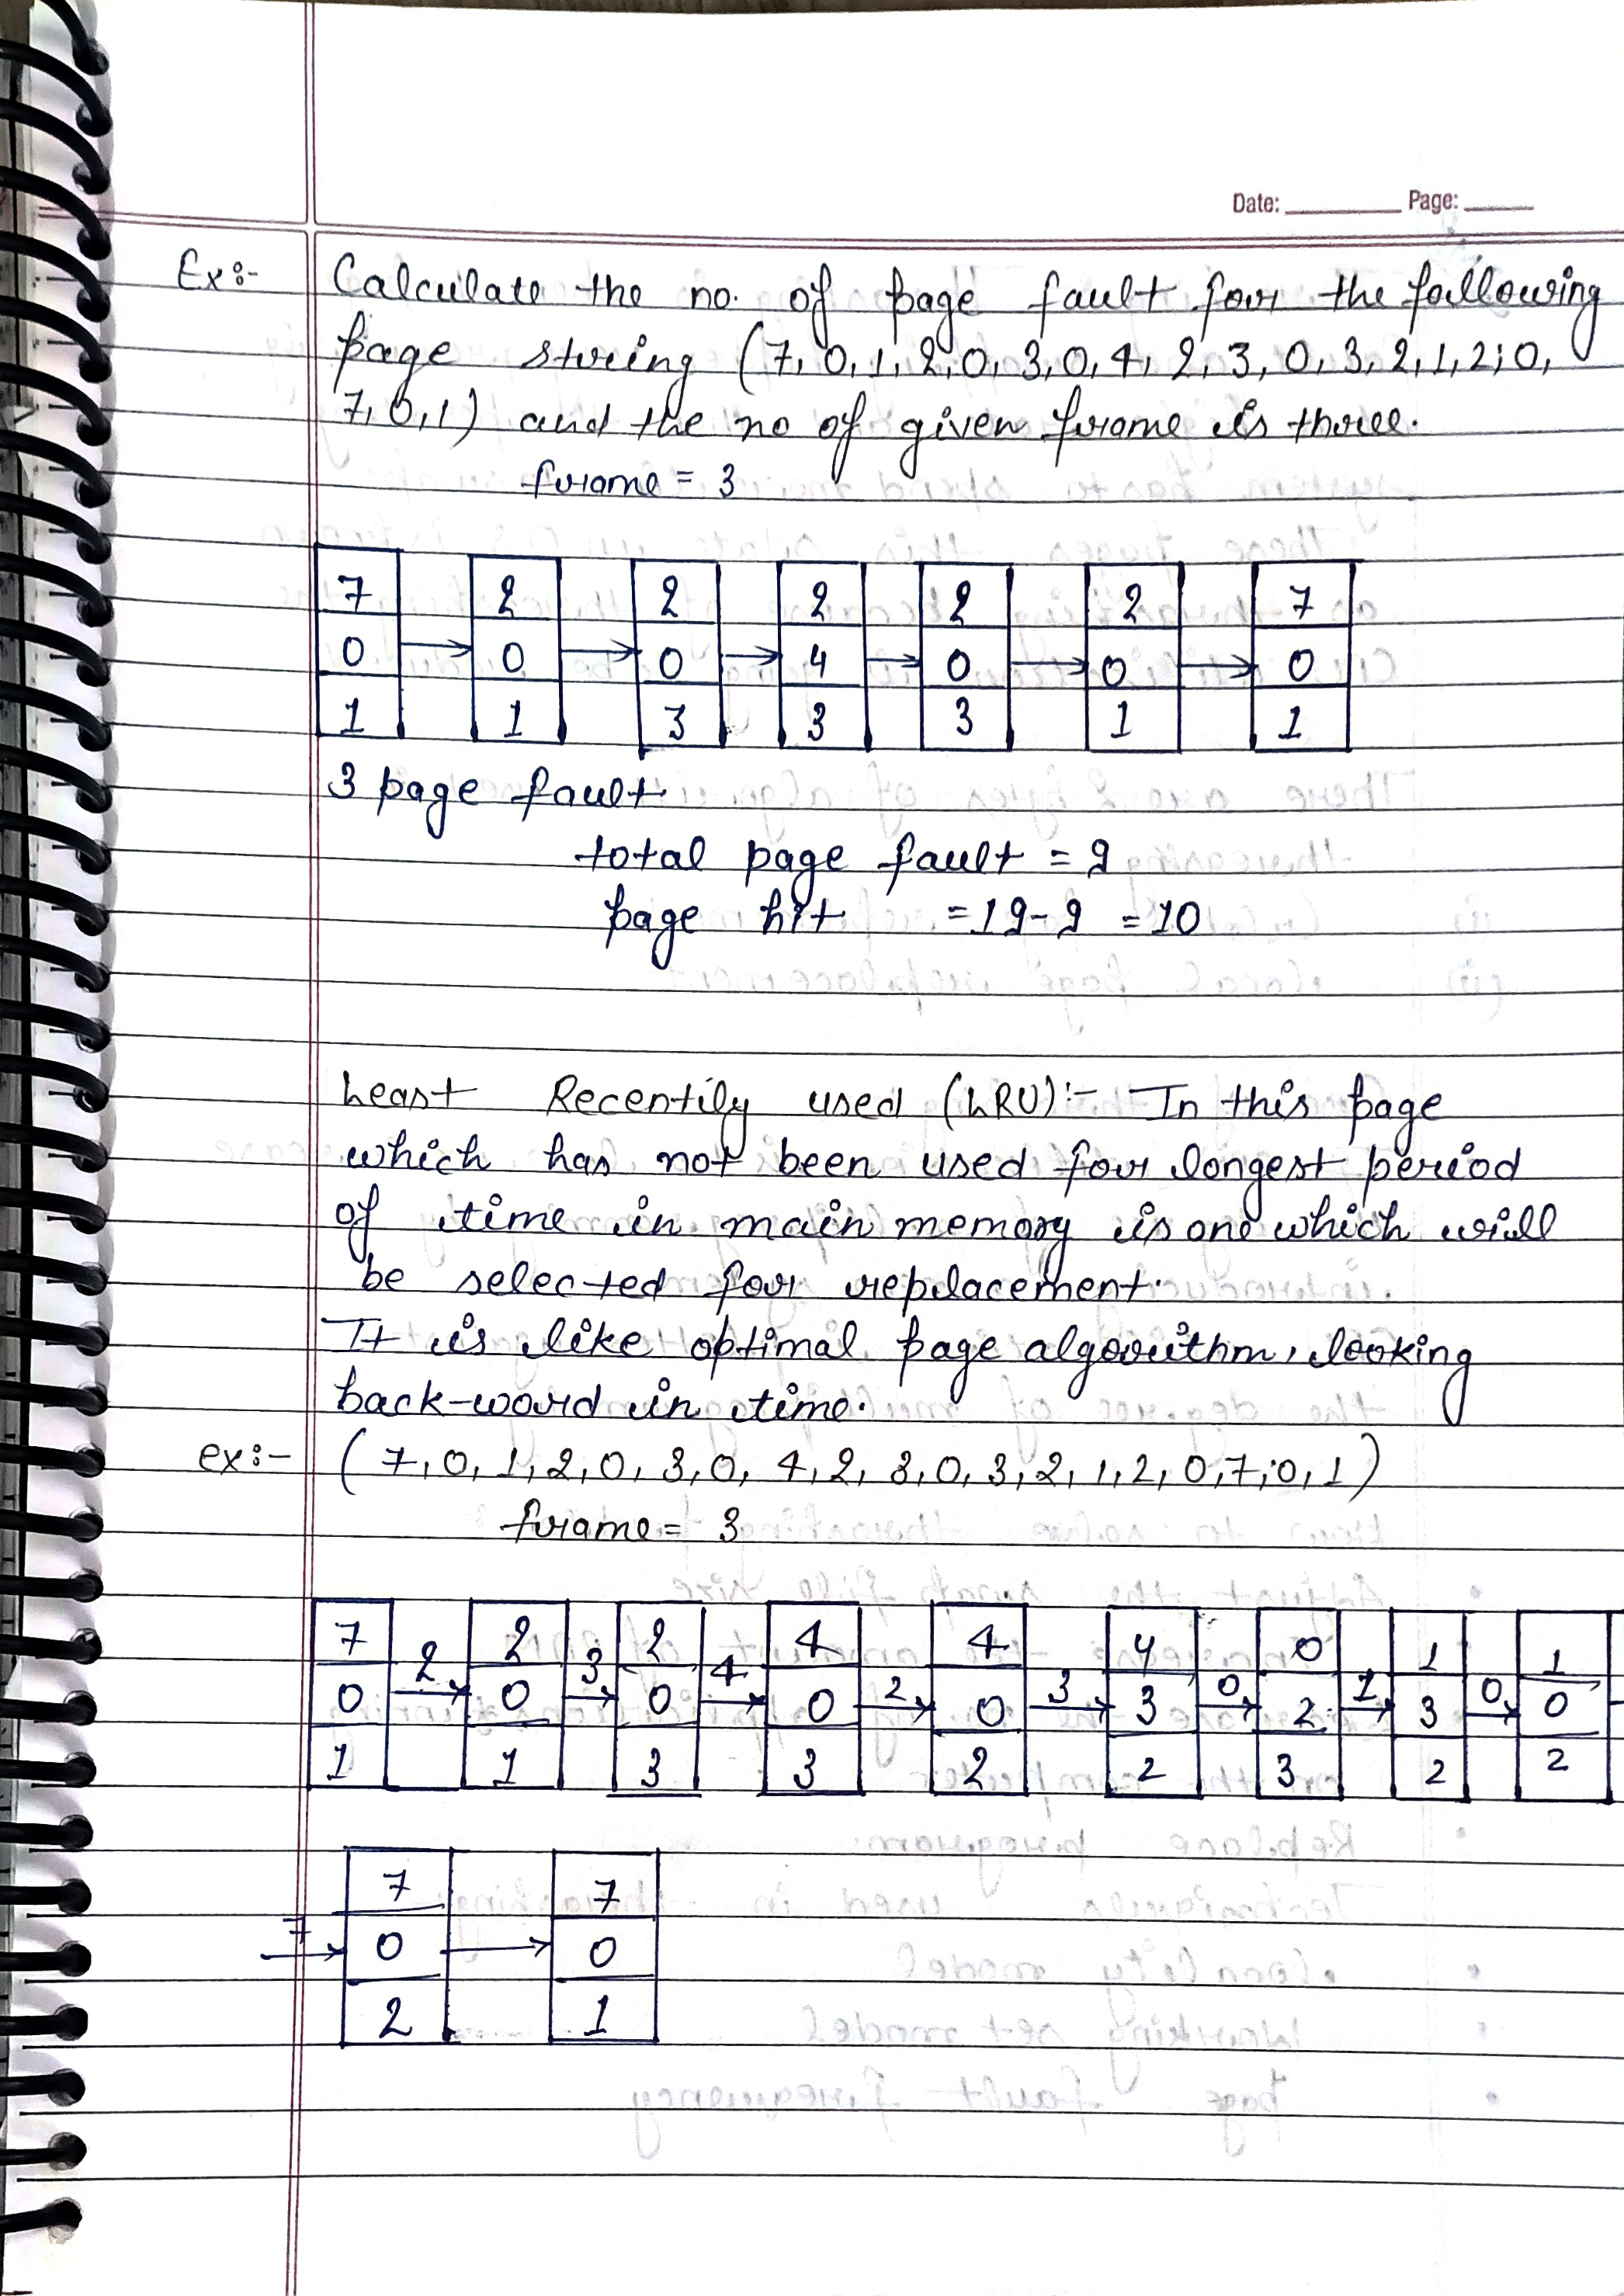 Date: Page:
Ex:- Calculate the no. of page fault for the following
page string (7, 0, 1, 2, 0, 3, 0, 4, 2, 3, 0, 3, 2, 1, 2, 0,
7, 0, 1) and the no of given frame is three.
frame = 3
7 2 2 2 2 2 7
0 0 0 4 0 0 0
1 1 3 3 3 1 1
3 page fault.
total page fault = 9
page hit = 19 - 9 = 10
Least Recentily used (LRU):- In this page
which has not been used for longest period
of time in main memory is one which will
be selected for replacement.
It is like optimal page algorithm, looking
back-word in time.
ex:- (7, 0, 1, 2, 0, 3, 0, 4, 2, 3, 0, 3, 2, 1, 2, 0, 7, 0, 1)
frame = 3
7 2 2 3 2 4 4 4 0 1 1
0 2 0 0 4 0 2 0 3 3 0 2 1 3 0 0
1 1 3 3 2 2 3 2 2
7 7
7 0 0
2 1